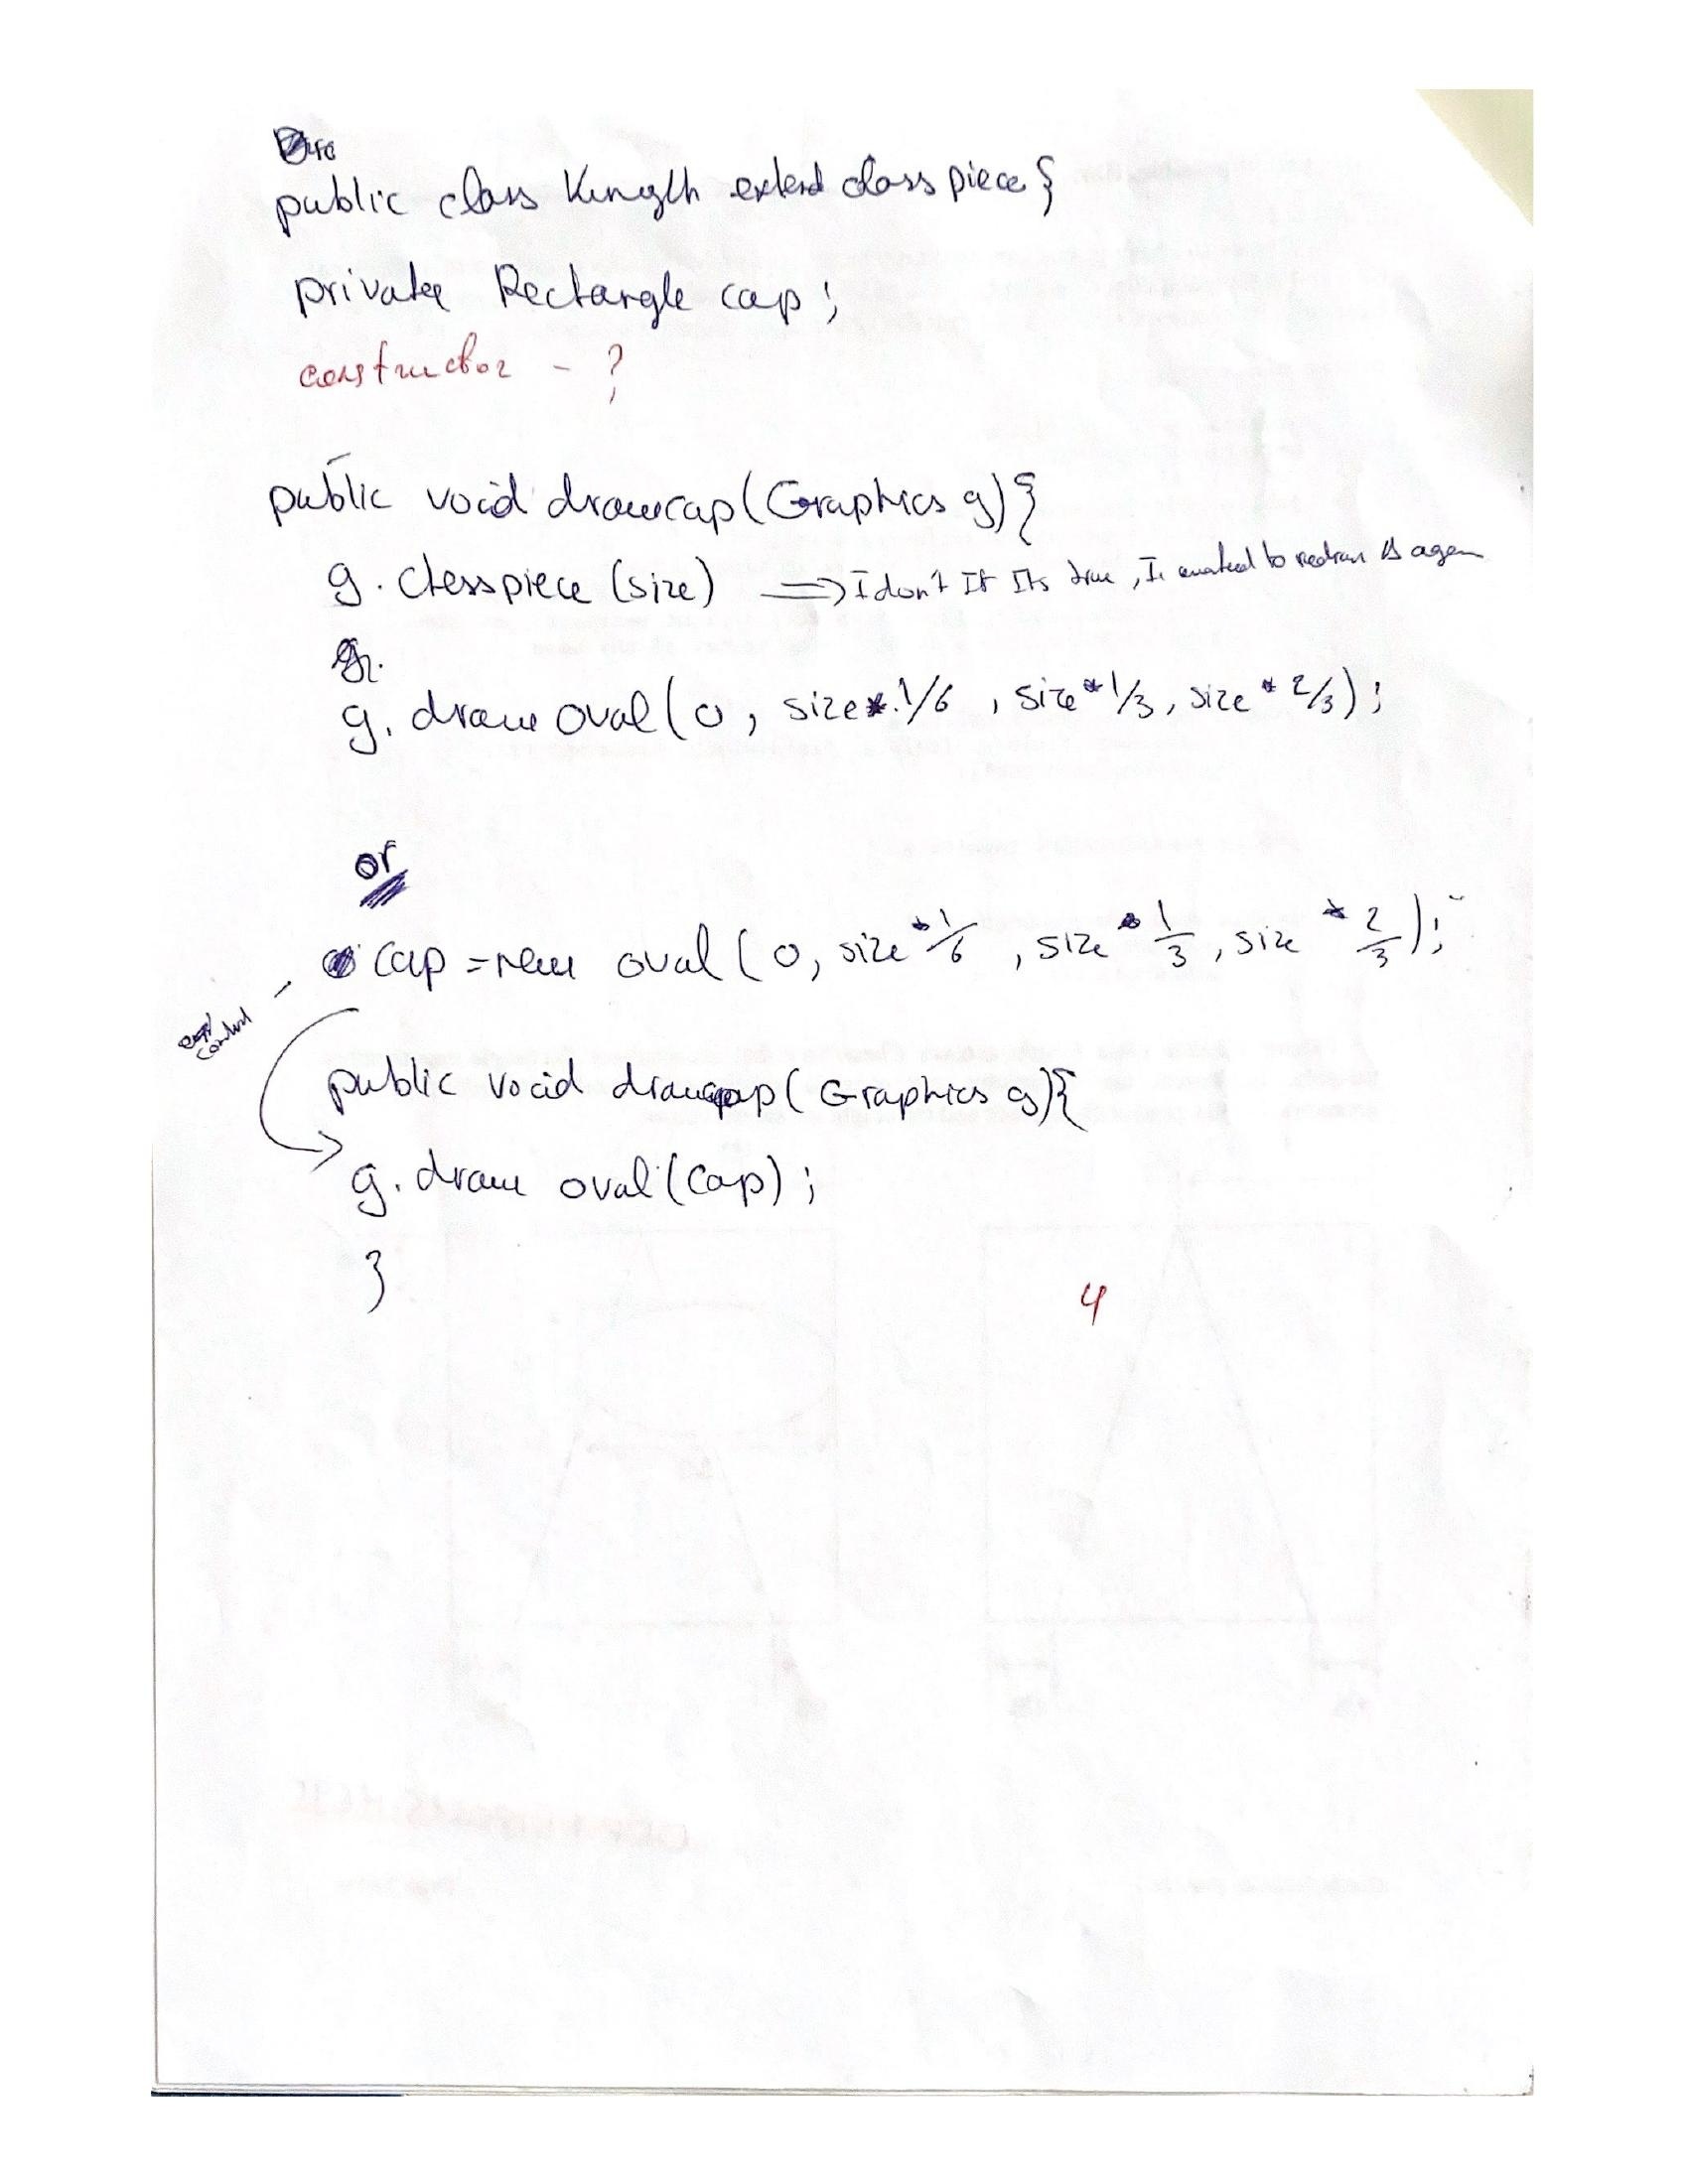 public class Kength extend class piece {
private Rectangle cap ;
constructor - ?
public void drawcap(Graphics g){
g. Chesspiece (size) => I don't If Its true , I wanted to redraw Δ again
g.
g. draw oval (0 , size * 1/6 , size * 1/3 , size * 2/3) ;
or
cap = new oval ( 0, size * 1/6 , size * 1/3 , size * 2/3 );
public void drawcap( Graphics g){
g. draw oval (cap) ;
}
4